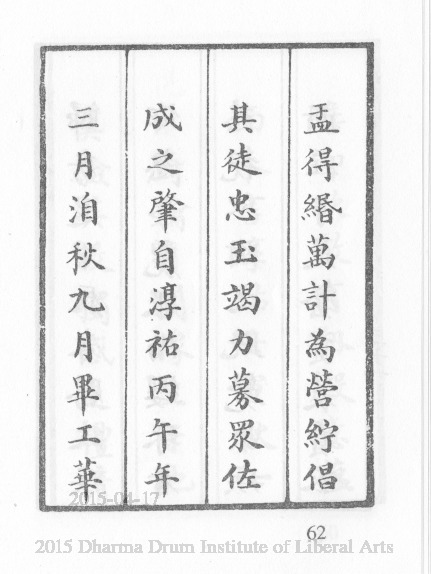 盂得緡萬計為營紵倡
其徒忠玉竭力募眾佐
成之肇自淳祐丙午年
三月洎秋九月畢工華
2015-04-17
62
2015 Dharma Drum Institute of Liberal Arts